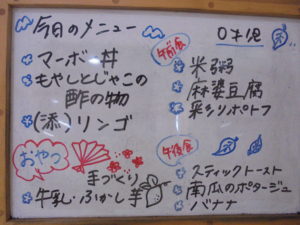 今日のメニュー
* マーボ丼
* もやしとじゃこの
酢の物
* (添)リンゴ
おやつ
手づくり
* 牛乳・ふかし芋
0才児
午前食
* 米粥
* 麻婆豆腐
* 彩りポトフ
午後食
* スティックトースト
* 南瓜のポタージュ
* バナナ